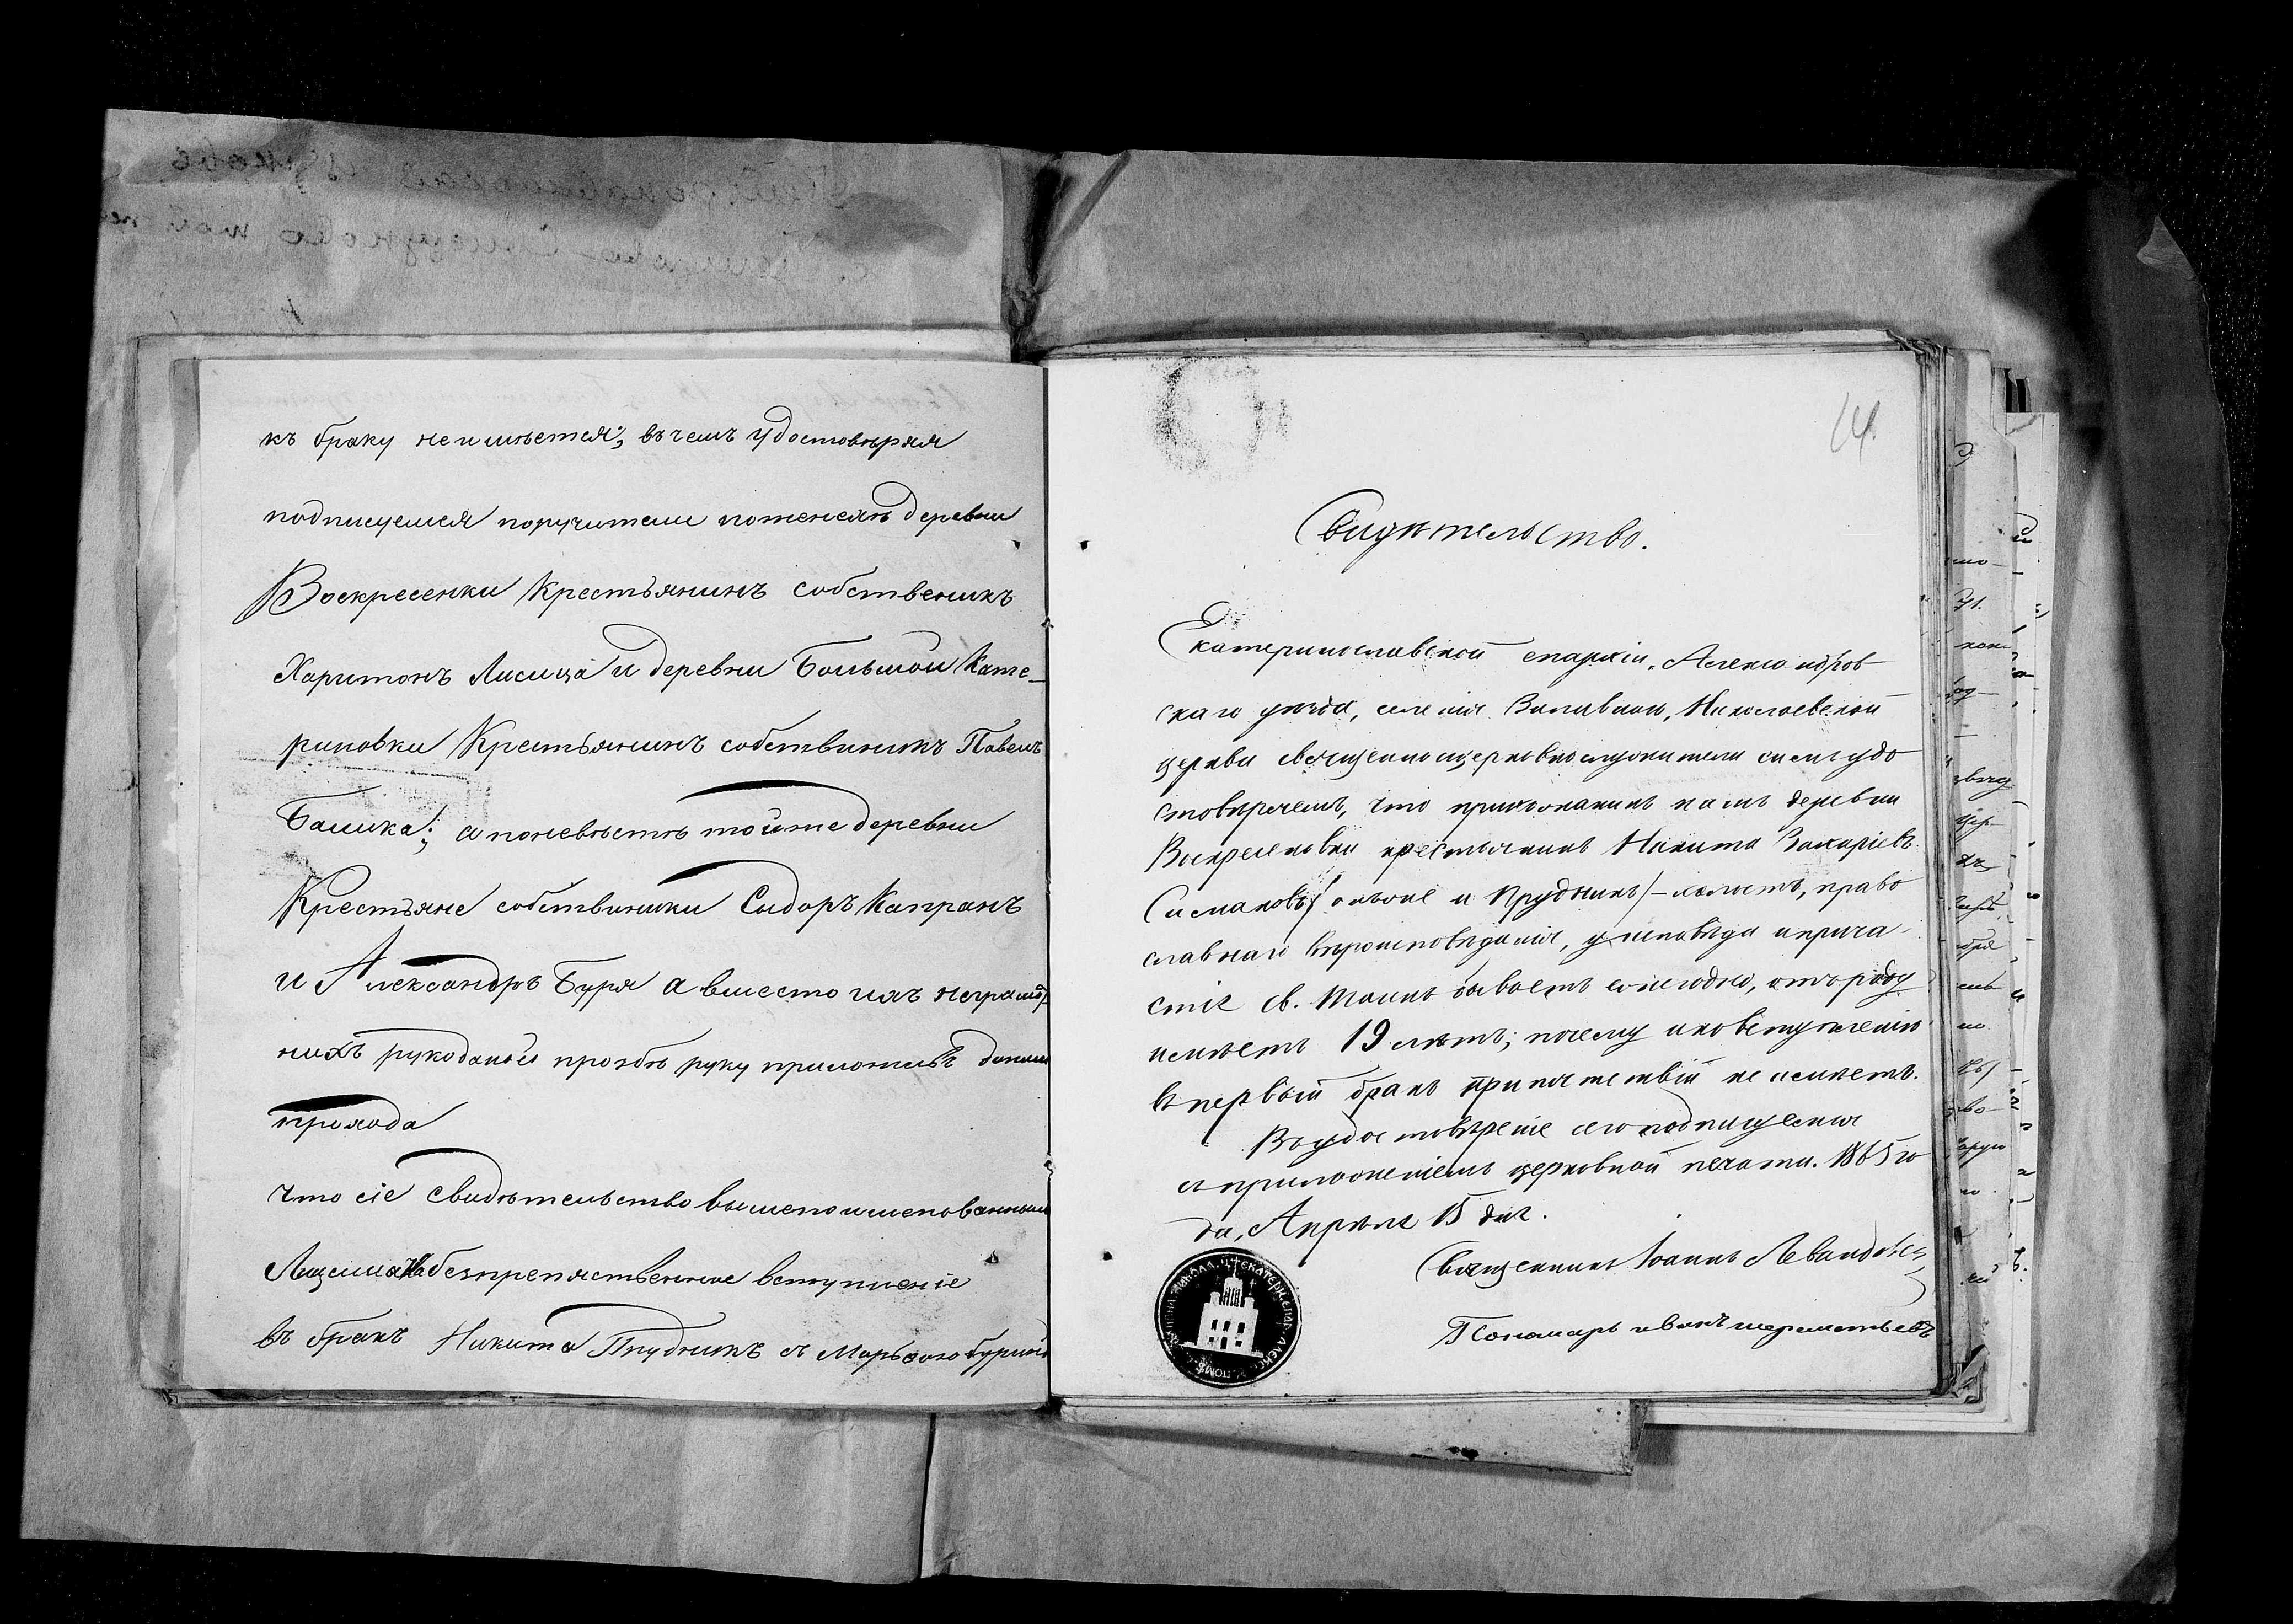 къ браку неимѣется; въ чемъ удостовѣряя
подписуемся поручители поженехѣ деревни
Воскресенки Крестьянинъ собственикъ
Харитонъ Лисица и деревни Большой Кате-
риновки Крестьянинъ собствиникъ Павелъ
Башка; а поневѣстѣ тойже деревни
Крестьяне собствиники Сыдоръ Капранъ
и Александръ Буря а вместо ихъ неграмот
нихъ рукоданой прозбѣ руку приложилъ
что сіе свидѣтельство вышепоименованным
Лицама На безпрепяственное вступленіе
въ бракъ Никита Прудникъ съ Марьою
14.
Свидѣтельство.
Екатеринославской епархіи, Александров
скаго уѣзда, селенія Николаевской
церкви священноицерковнослужители симъ удо
стовѣряемъ, что прихожанинъ нашъ деревни
Воскресеновки крестьянинъ Никита Захаріевъ
Симаковъ /онъже и Прудникъ/ - холостъ, право
славнаго вѣроисповѣданія, у исповѣди и прича
стія св. Таинъ бываетъ ежегодно, отъ роду
имѣетъ 19 лѣтъ; почему и ко вступленію
въ первый бракъ припятствій не имѣетъ.
Въ удостовѣреніе сего подписуемся
съ приложеніемъ церковной печати. 1865 го
да, Апрѣля 15 дня.
Священникъ Іоаннъ Левандовскі
Пономарь иванъ шереметьевъ